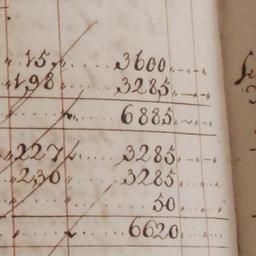 15 3600
198 3285
6885
227 3285
230 3285
50
6620